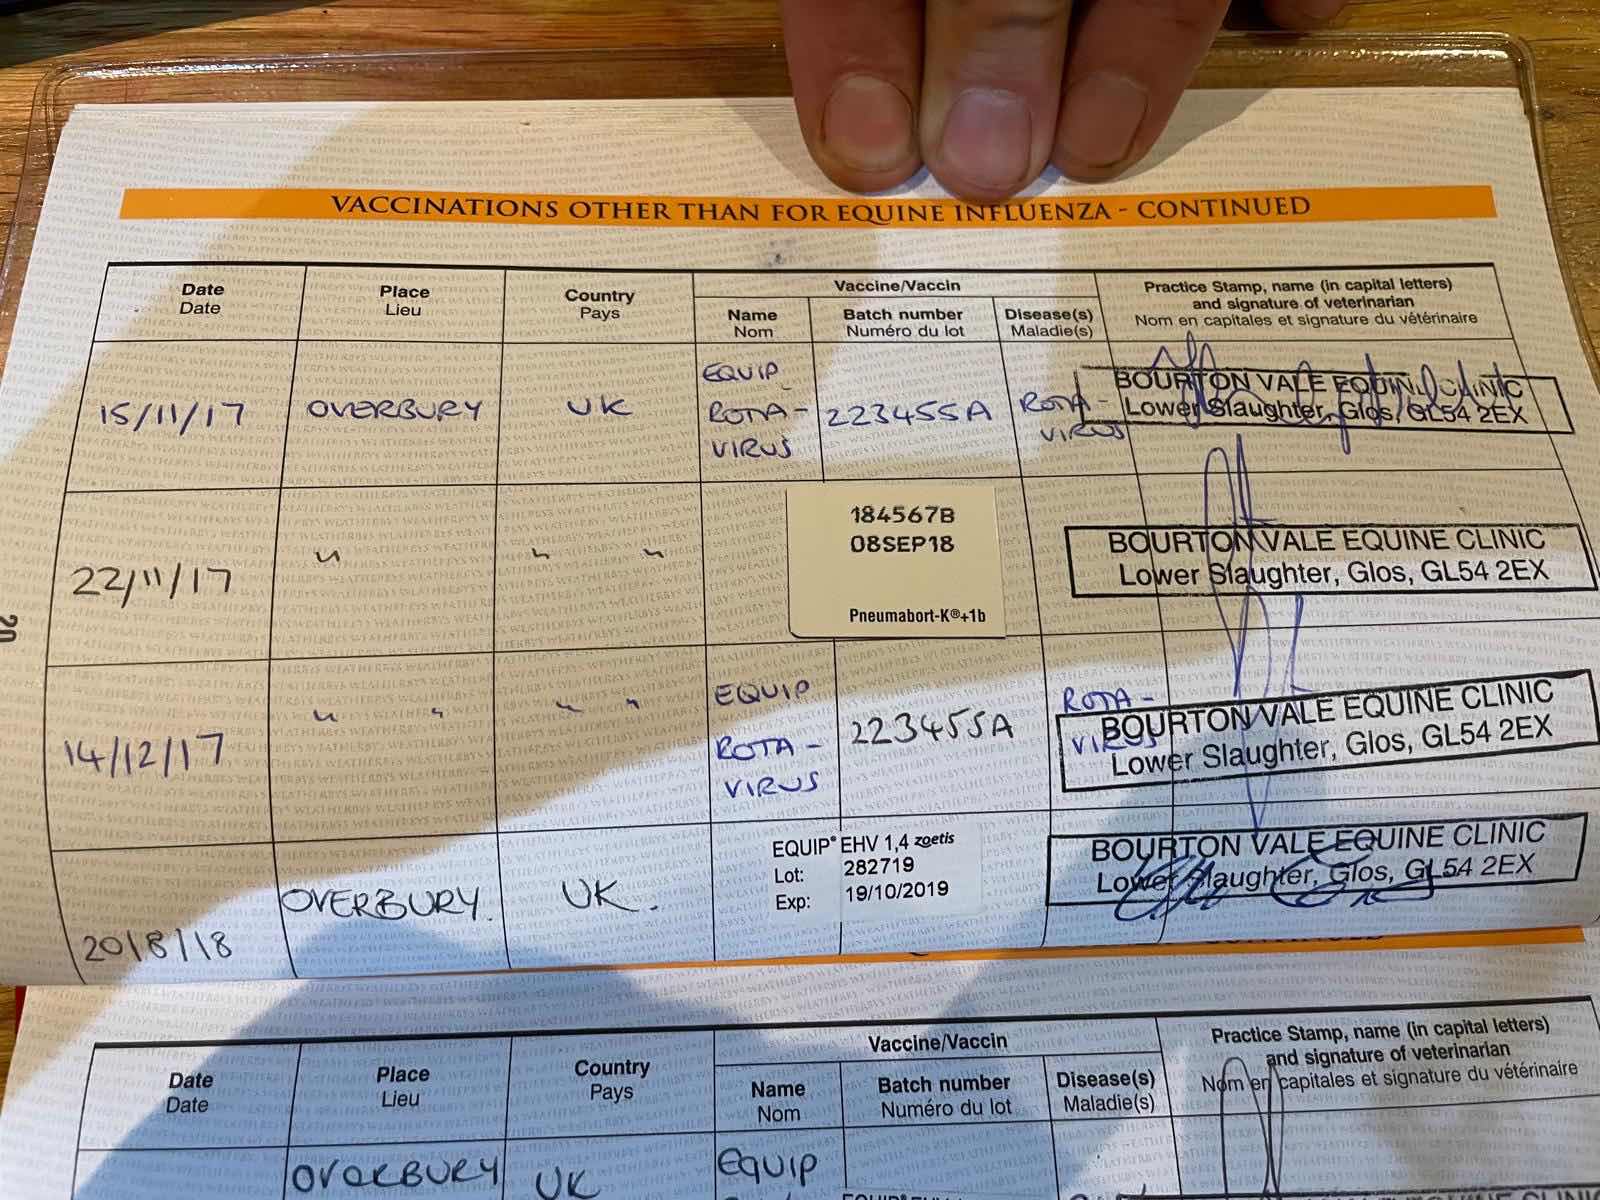 VACCINATIONS OTHER THAN FOR EQUINE INFLUENZA - CONTINUED
Date
Date
Place
Lieu
Country
Pays
Vaccine/Vaccin
Name
Nom
Batch number
Numéro du lot
Disease(s)
Maladie(s)
Practice Stamp, name (in capital letters)
and signature of veterinarian
Nom en capitales et signature du vétérinaire
15/11/17
OVERBURY
UK
EQUIP
ROTA-
VIRUS
223455A
ROTA-
VIRUS
BOURTON VALE EQUINE CLINIC
Lower Slaughter, Glos, GL54 2EX
22/11/17
" " "
184567B
08SEP18
Pneumabort-K®+1b
BOURTON VALE EQUINE CLINIC
Lower Slaughter, Glos, GL54 2EX
14/12/17
" " " "
EQUIP
ROTA-
VIRUS
223455A
ROTA-
VIRUS
BOURTON VALE EQUINE CLINIC
Lower Slaughter, Glos, GL54 2EX
20/8/18
OVERBURY.
UK.
EQUIP® EHV 1,4 zoetis
Lot: 282719
Exp: 19/10/2019
BOURTON VALE EQUINE CLINIC
Lower Slaughter, Glos, GL54 2EX
20
Date
Date
Place
Lieu
Country
Pays
Vaccine/Vaccin
Name
Nom
Batch number
Numéro du lot
Disease(s)
Maladie(s)
Practice Stamp, name (in capital letters)
and signature of veterinarian
Nom en capitales et signature du vétérinaire
OVERBURY
UK
EQUIP